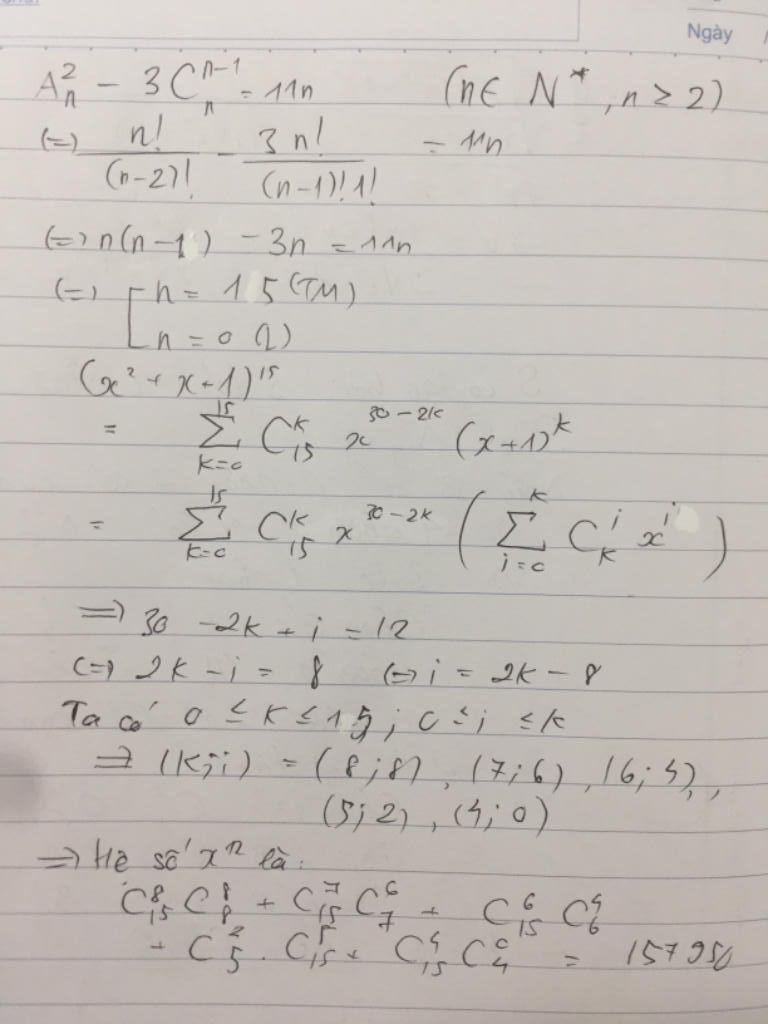 Ngày
A_n^2 - 3C_n^{n-1} = 11n (n ∈ N^*, n ≥ 2)
(=) \frac{n!}{(n-2)!} - \frac{3n!}{(n-1)!1!} = 11n
(=) n(n-1) - 3n = 11n
(=) [ n = 15 (TM)
n = 0 (L)
(x^2 + x + 1)^{15}
= \sum_{k=0}^{15} C_{15}^k x^{30-2k} (x+1)^k
= \sum_{k=0}^{15} C_{15}^k x^{30-2k} ( \sum_{i=0}^{k} C_k^i x^i )
=> 30 - 2k + i = 12
(=) 2k - i = 8 (=) i = 2k - 8
Ta có 0 ≤ k ≤ 15; 0 ≤ i ≤ k
=> (k;i) = (8;8), (7;6), (6;4),
(5;2), (4;0)
=> Hệ số x^{12} là:
C_{15}^8 C_8^8 + C_{15}^7 C_7^6 + C_{15}^6 C_6^4
+ C_5^2 . C_{15}^5 + C_{15}^4 C_4^0 = 157950